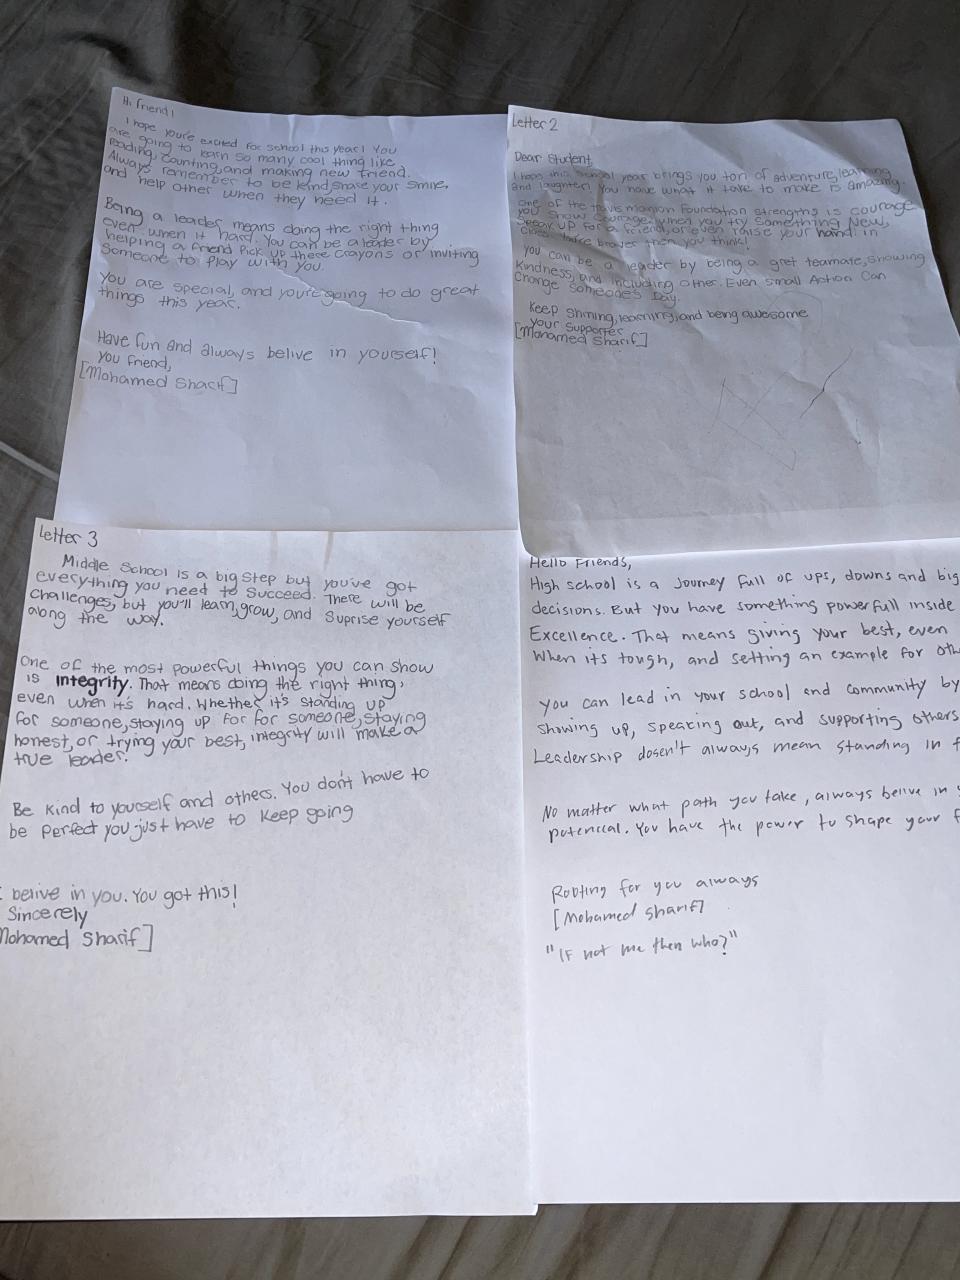 Hi friend!
I hope you're excited for school this year! You
are going to learn so many cool thing like
reading, counting, and making new friend.
Always remember to be kind, share your smile,
and help other when they need it.
Being a leader means doing the right thing
even when it hard. You can be a leader by
helping a friend Pick up these crayons or inviting
someone to play with you.
You are special, and you're going to do great
things this year.
Have fun and always belive in yourself!
you friend,
[Mohamed Sharif]
Letter 2
Dear Student,
I hope this school year brings you ton of adventure, learning
and laughter! You have what it take to make is amazing.
one of the travis manion Foundation strengths is courage
you show courage, when you try something New,
speak up for a friend, or even raise your hand in
class. You're braver then you think!
you can be a leader by being a gret teamate, showing
Kindness, and including other. Even small Action Can
Change Someone's Day.
Keep shining, learning, and being awesome
your Supporter
[Mohamed Sharif]
Letter 3
Middle School is a big step but you've got
everything you need to succeed. There will be
challenges, but you'll learn, grow, and Suprise yourself
along the way.
One of the most powerful things you can show
is integrity. That means doing the right thing,
even when it's hard. Whether it's standing up
for someone, staying up for for someone, staying
honest, or trying your best, integrity will make a
true leader.
Be kind to yourself and others. You don't have to
be perfect you just have to keep going
I belive in you. You got this!
Sincerely
Mohamed Sharif]
Hello Friends,
High school is a Journey full of ups, downs and big
decisions. But you have something powerfull inside
Excellence. That means giving your best, even
When its tough, and setting an example for oth
you can lead in your school and community by
showing up, speacing out, and supporting others
Leadership dosen't always mean standing in f
No matter what path you take, always belive in y
potencial. You have the power to shape your f
Rooting for you always
[Mohamed Sharif]
"IF not me then who?"